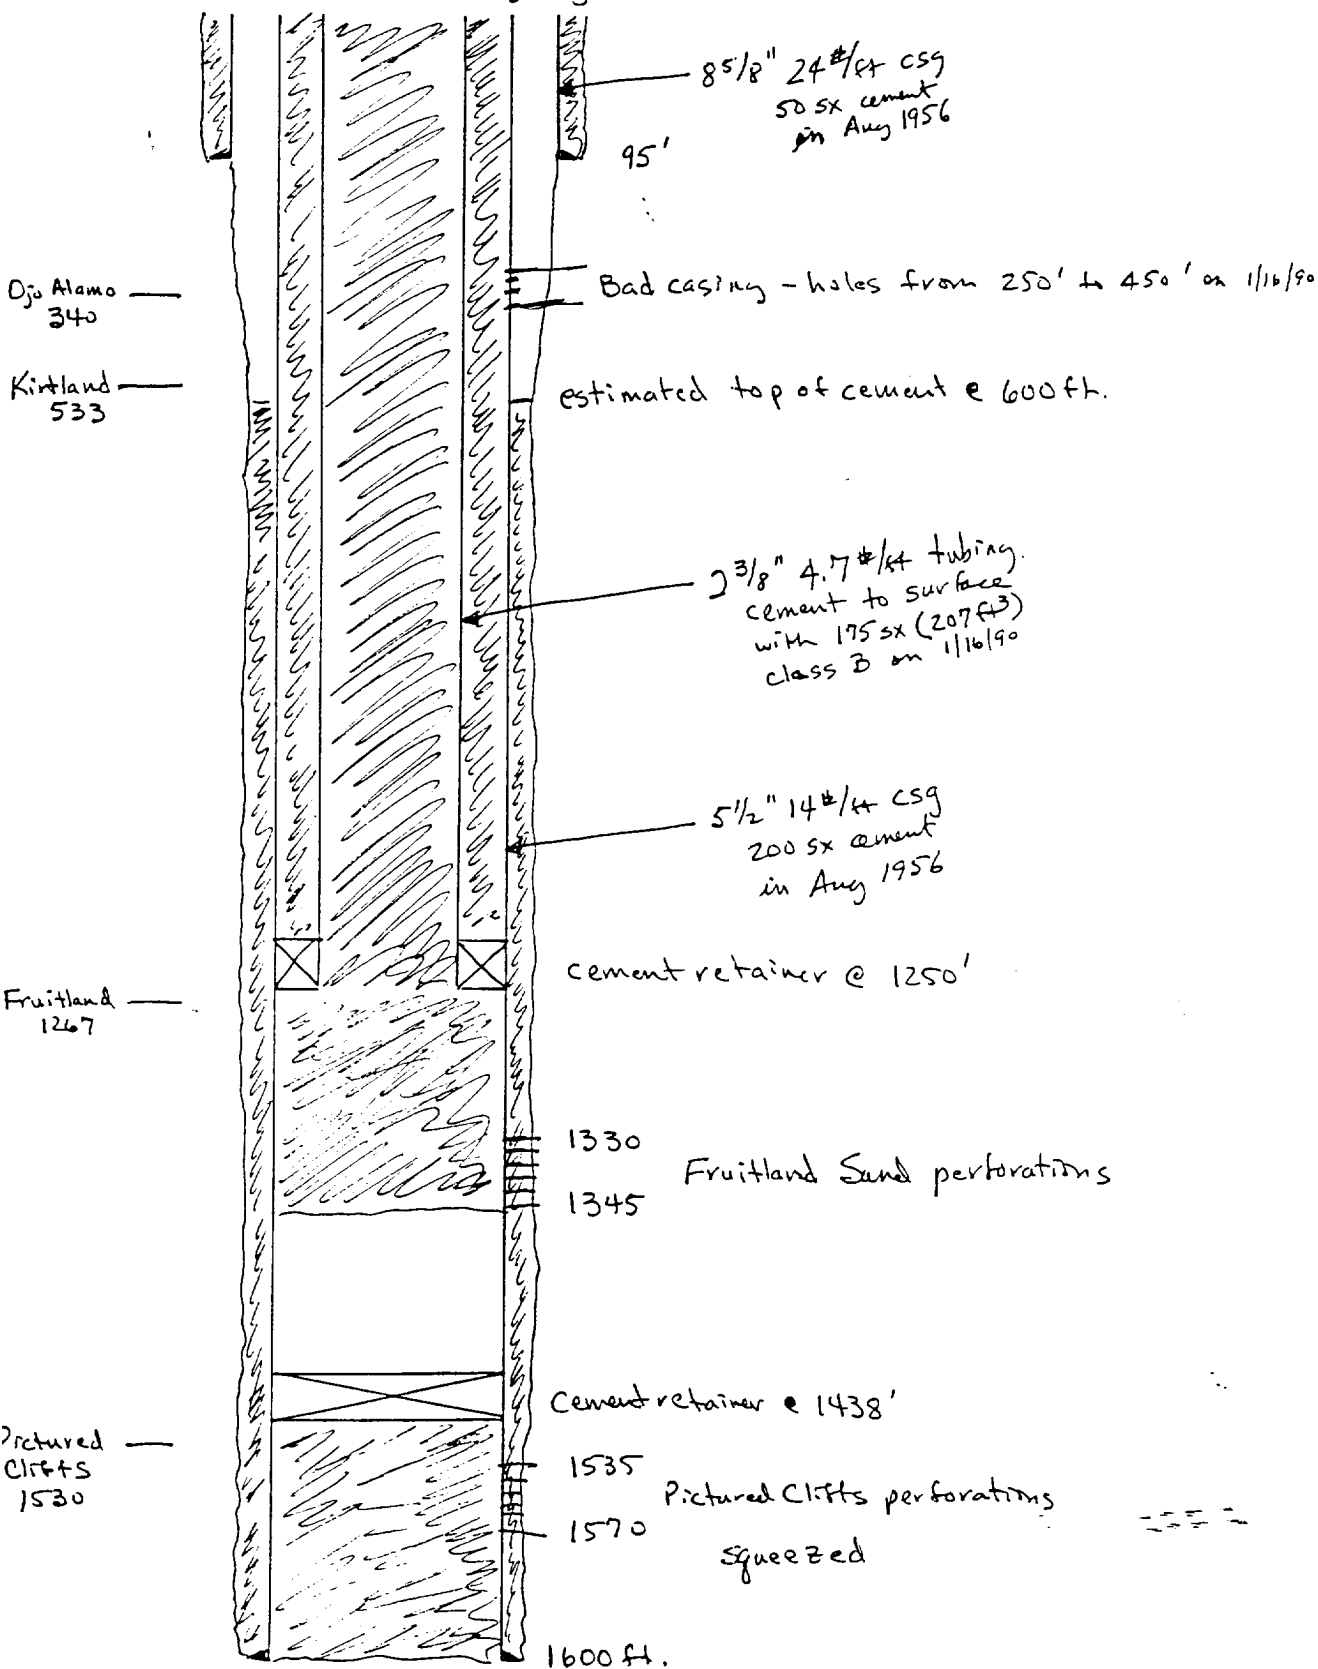 8 5/8" 24 #/ft csg
50 sx cement
in Aug 1956
95'
Ojo Alamo
340
Bad casing - holes from 250' to 450' on 1/16/90
Kirtland
533
estimated top of cement @ 600 ft.
2 3/8" 4.7 #/ft tubing.
cement to surface
with 175 sx (207 ft³)
class B on 1/16/90
5 1/2" 14 #/ft csg
200 sx cement
in Aug 1956
cement retainer @ 1250'
Fruitland
1267
1330
Fruitland Sand perforations
1345
Cement retainer @ 1438'
Pictured
Cliffs
1530
1535
Pictured Cliffs perforations
1570
squeezed
1600 ft.